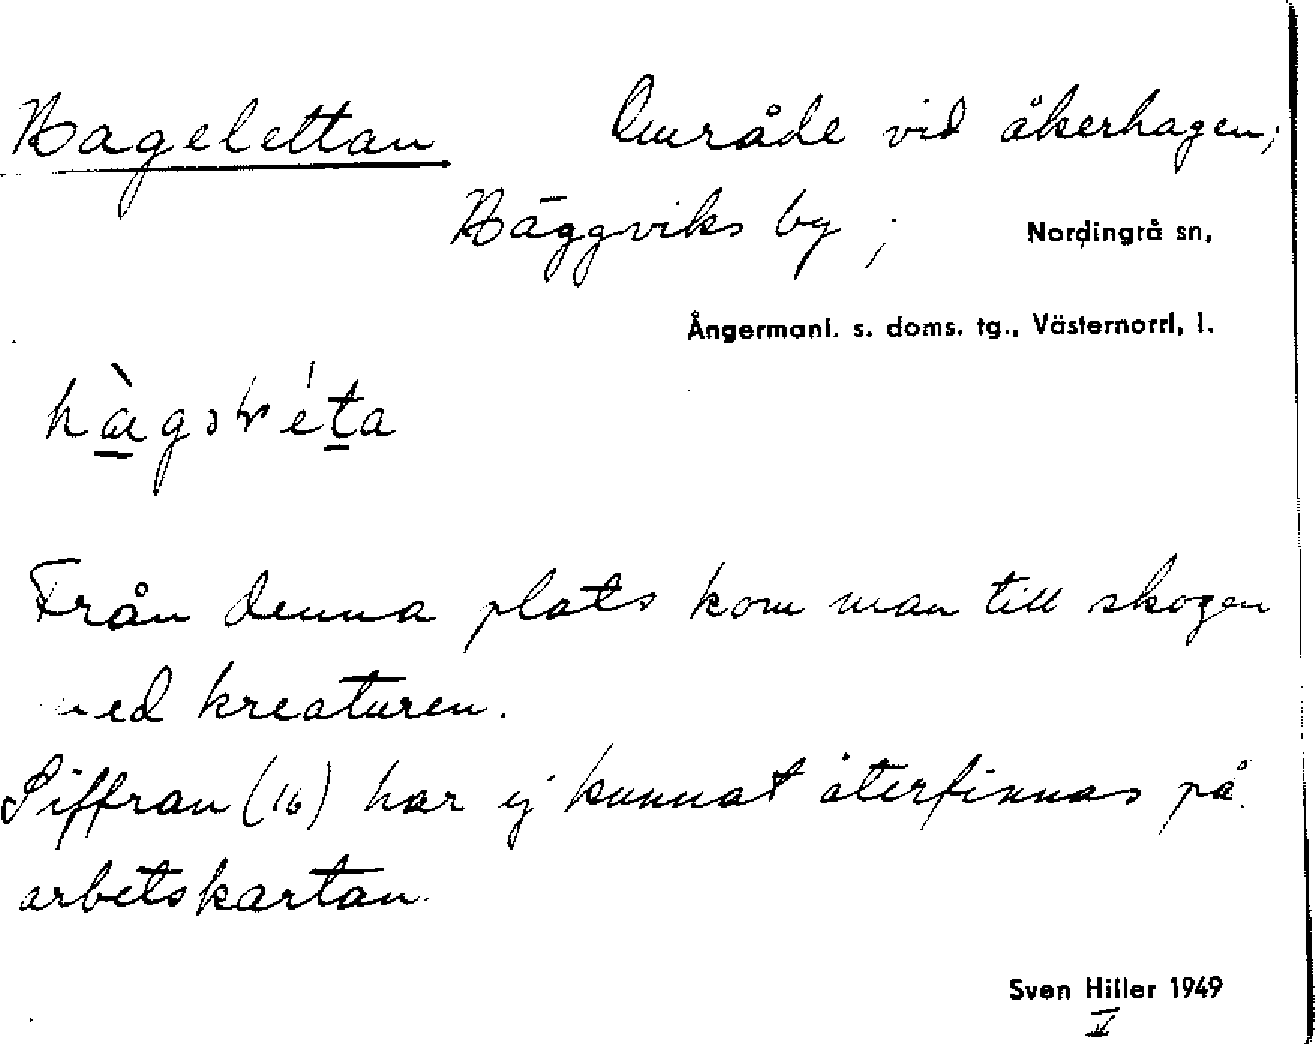 Hagelettan Område vid åkerhagen;
Häggviks by ; Nordingrå sn,
Ångermanl. s. doms. tg., Västernorrl. l.
Från denna plats kom man till skogen
med kreaturen.
Siffran (16) har ej kunnat återfinnas på
arbetskartan.
Sven Hiller 1949
V